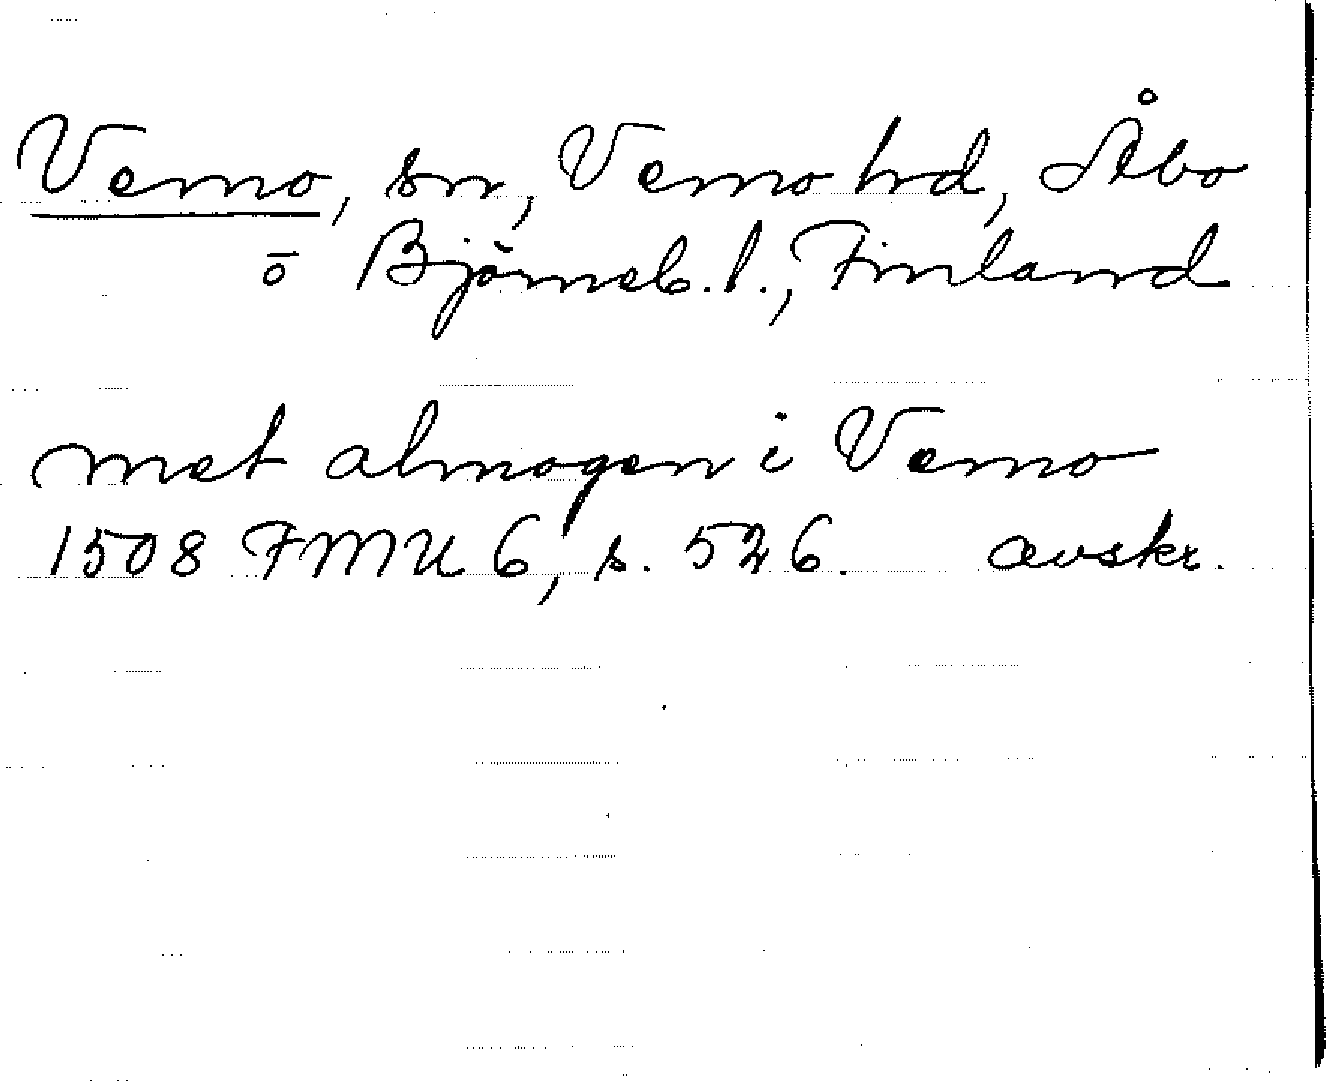 Vemo, sn, Vemo hd, Åbo
ō Björneb. l., Finland
met almogen i Vemo
1508 FMU 6, s. 526. avskr.